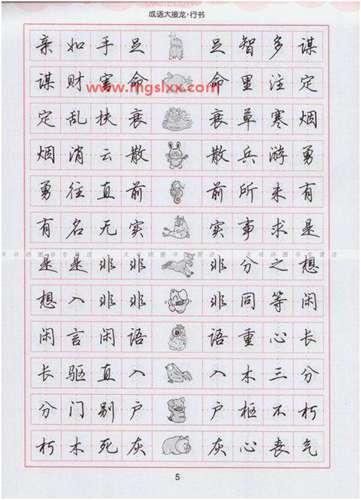 成语大接龙·行书
亲如手足 足智多谋
谋财害命 命里注定
定乱扶衰 衰草寒烟
烟消云散 散兵游勇
勇往直前 前所未有
有名无实 实事求是
是是非非 非分之想
想入非非 非同等闲
闲言闲语 语重心长
长驱直入 入木三分
分门别户 户枢不朽
朽木死灰 灰心丧气
5
www.mgslxx.com